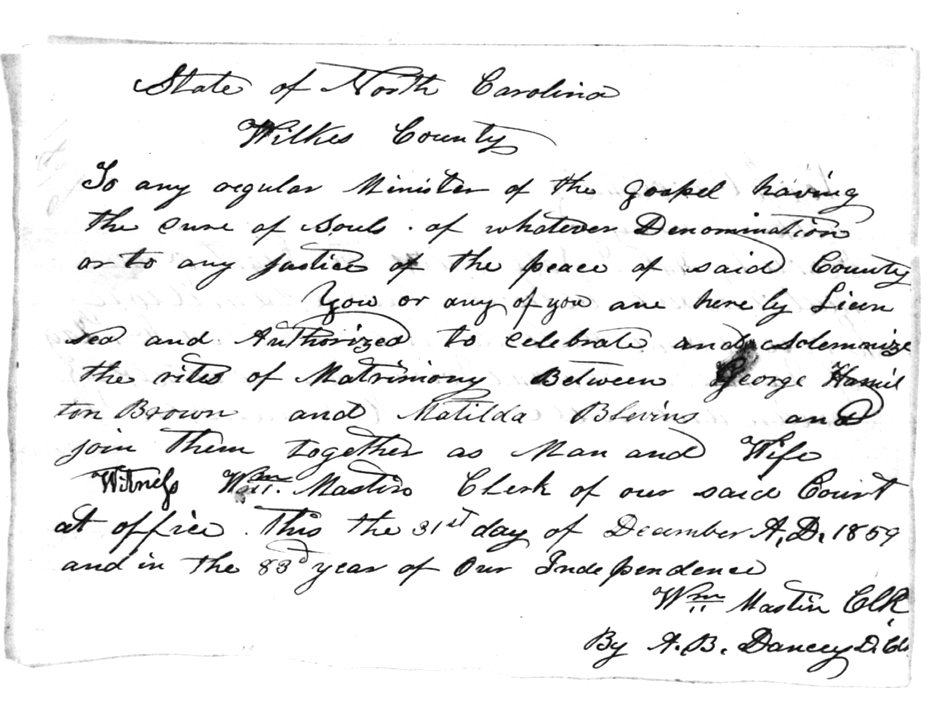 State of North Carolina
Wilkes County
To any regular Minister of the gospel having
the cure of Souls . of whatever Denomination
or to any justice of the peace of said County
You or any of you are here by Licen
sed and Authorized to celebrate and solemnize
the rites of Matrimony Between George Hamil
ton Brown and Matilda Blevins and
join them together as Man and Wife
Witness Wm. Mastin Clerk of our said Court
at office . This the 31st day of December A,D. 1859
and in the 83d year of Our Independence
Wm Mastin Clk
By A.B. Dancey D. Clk